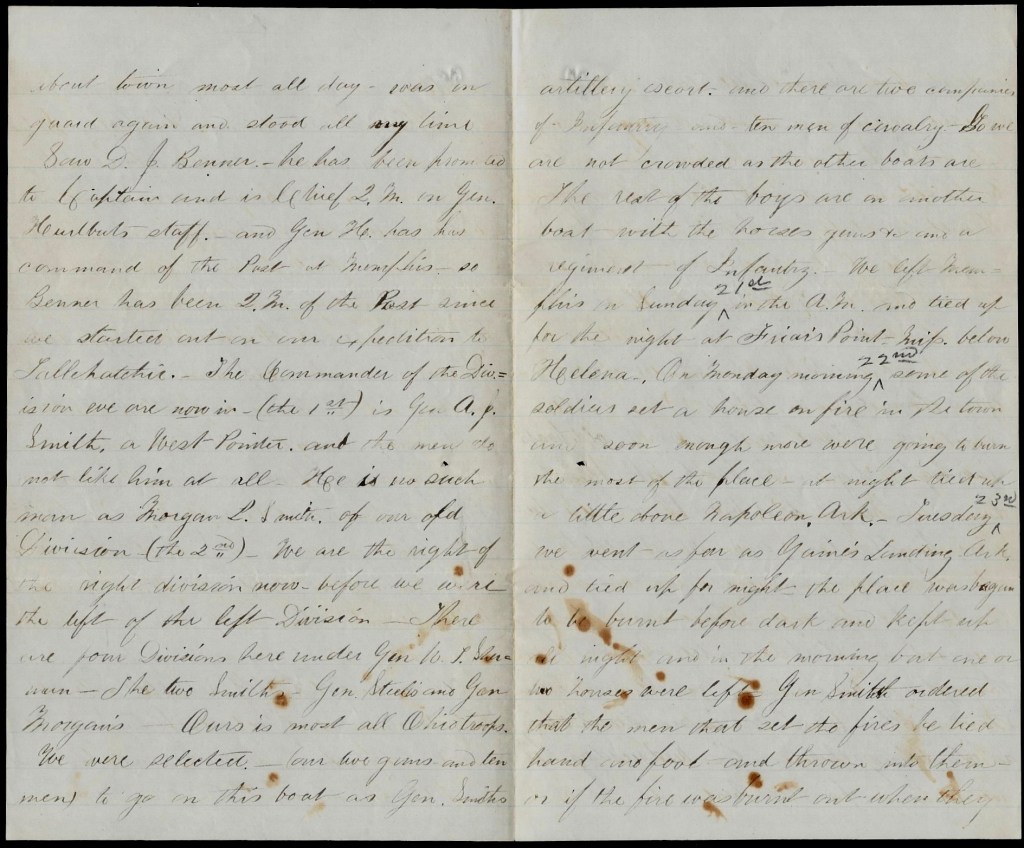 about town most all day - was on
guard again and stood all my time
Saw D. J. Benner. - he has been promoted
to Captain and is Chief Q. M. on Gen.
Hurlbuts staff. - and Gen H. has
command of the Post at Memphis - so
Benner has been Q. M. of the Post since
we started out on our expedition to
Tallehatchie. - The Commander of the Div=
ision we are now in - (the 1st) is Gen A. J.
Smith, a West Pointer. and the men do
not like him at all - Hee is no such
man as Morgan L. Smith. of our old
Division - (the 2nd) - We are the right of
the right division now - before we were
the left of the left Division - There
are four Divisions here under Gen W. T. Sher=
man - The two Smiths - Gen Steels and Gen
Morgan's - Ours is most all Ohio troops.
We were selected. - (our two guns and ten
men) to go on this boat as Gen. Smiths
artillery escort - and there are two companies
of Infantry and ten men of cavalry - So we
are not crowded as the other boats are
The rest of the boys are on another
boat with the horses guns &c and a
regiment of Infantry. - We left Mem=
phis on Sunday 21st in the A.M. and tied up
for the night at Friar's Point - Miss. below
Helena -. On Monday morning 22nd some of the
soldiers set a house on fire in the town
and soon enough more were going to burn
the most of the place - at night tied up
a little above Napoleon, Ark. - Tuesday 23rd
we went as far as Gaines Landing Ark.
and tied up for night - the place was began
to be burnt before dark and kept up
all night and in the morning but one or
two houses were left - Gen Smith ordered
that the men that set the fires be tied
hand and foot and thrown into them -
or if the fire was burnt out when they